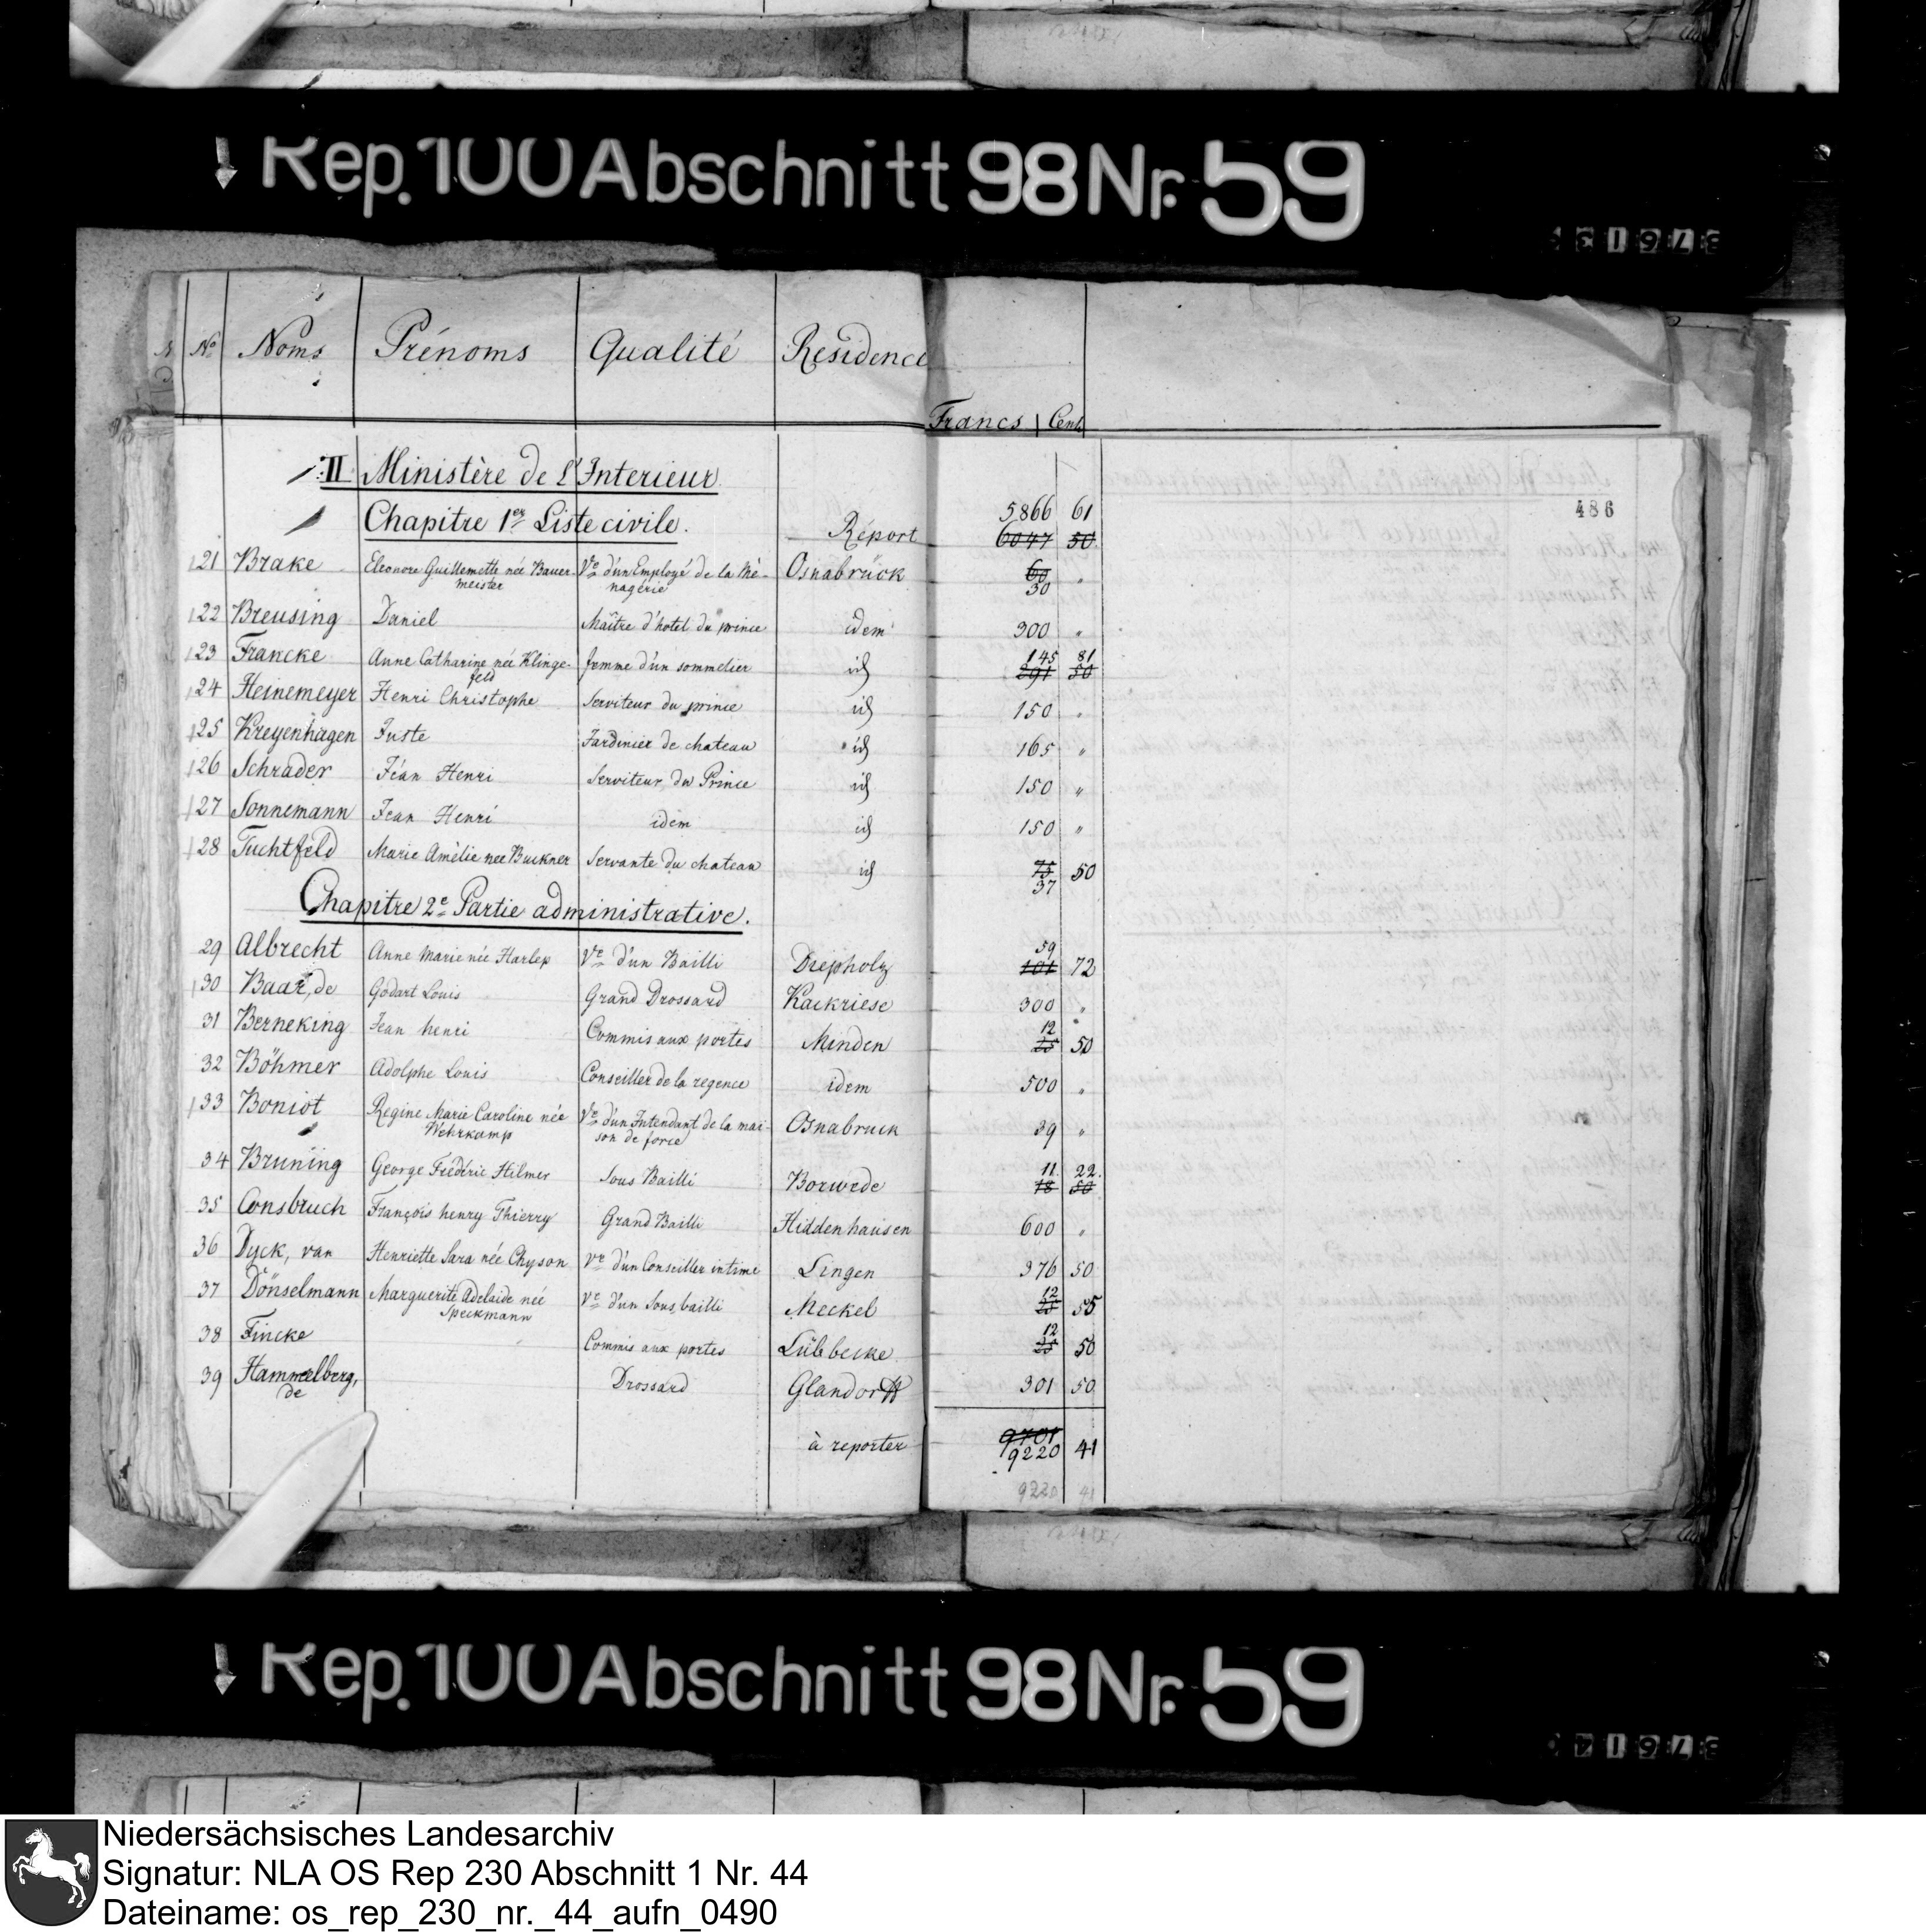 Rep. 100 Abschnitt 98 Nr. 59
No Noms Prénoms Qualité Residence
Francs Cent
II Ministère de l'Interieur.
486
Chapitre 1er Liste civile.
5866 61
Report 6047 50
21 Brake Eleonore Guillemette née Bauer- Ve d'un Employé de la Mé- Osnabrück 60 "
meister nagerie 30
22 Breusing Daniel Maître d'hotel du prince idem 300 "
145 81
23 Francke Anne Catharine née Klinge- femme d'un sommelier id 291 50
feld
24 Heinemeyer Henri Christophe Serviteur du prince id 150 "
25 Kreyenhagen Juste Jardinier de chateau id 165 "
26 Schrader Jéan Henri Serviteur du Prince id 150 "
27 Sonnemann Jean Henri idem id 150 "
28 Tuchtfeld Marie Amélie née Buckner Servante du chateau id 75 50
37
Chapitre 2e Partie administrative.
59
29 Albrecht Anne Marie née Ve d'un Bailli Diepholz 101 72
30 Baar, de Godart Louis Grand Drossard Kackriese 300 "
12
31 Berneking Jean henri Commis aux portes Minden 25 50
32 Böhmer Adolphe Louis Conseiller de la regence idem 500 "
33 Boniot Regine Marie Caroline née Ve d'un Intendant de la mai- Osnabruck 39 "
Wehrkamp son de force
11 22
34 Bruning George Frédéric Hilmer Sous Bailli Borwede 18 50
35 Consbruch François henry Thierry Grand Bailli Hiddenhausen 600 "
36 Dyck, van Henriette Sara née Chyson ve d'un Conseiller intime Lingen 376 50
12
37 Dönselmann Marguerite Adelaide née Ve d'un Sous bailli Meckel 25 55
Speckmann
12
38 Fincke Commis aux portes Lübbecke 25 50
39 Hammelberg, Drossard Glandorff 301 50
de
9701
à reporter 9220 41
9220 41
Rep. 100 Abschnitt 98 Nr. 59
Niedersächsisches Landesarchiv
Signatur: NLA OS Rep 230 Abschnitt 1 Nr. 44
Dateiname: os_rep_230_nr._44_aufn_0490